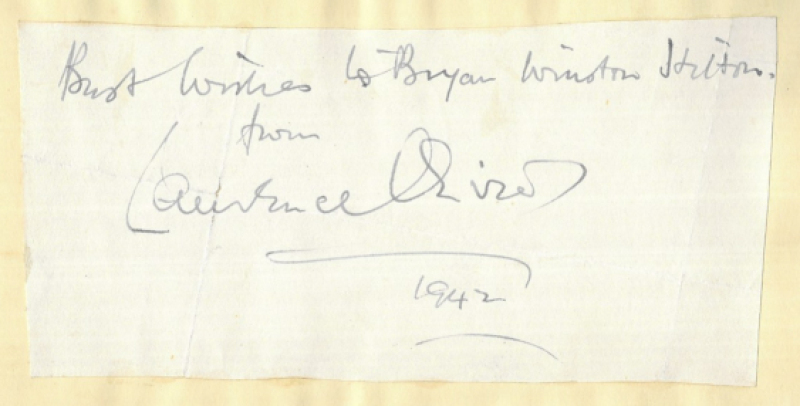 Best Wishes to Bryan Winston Hilton.
from
Laurence Olivier
1942